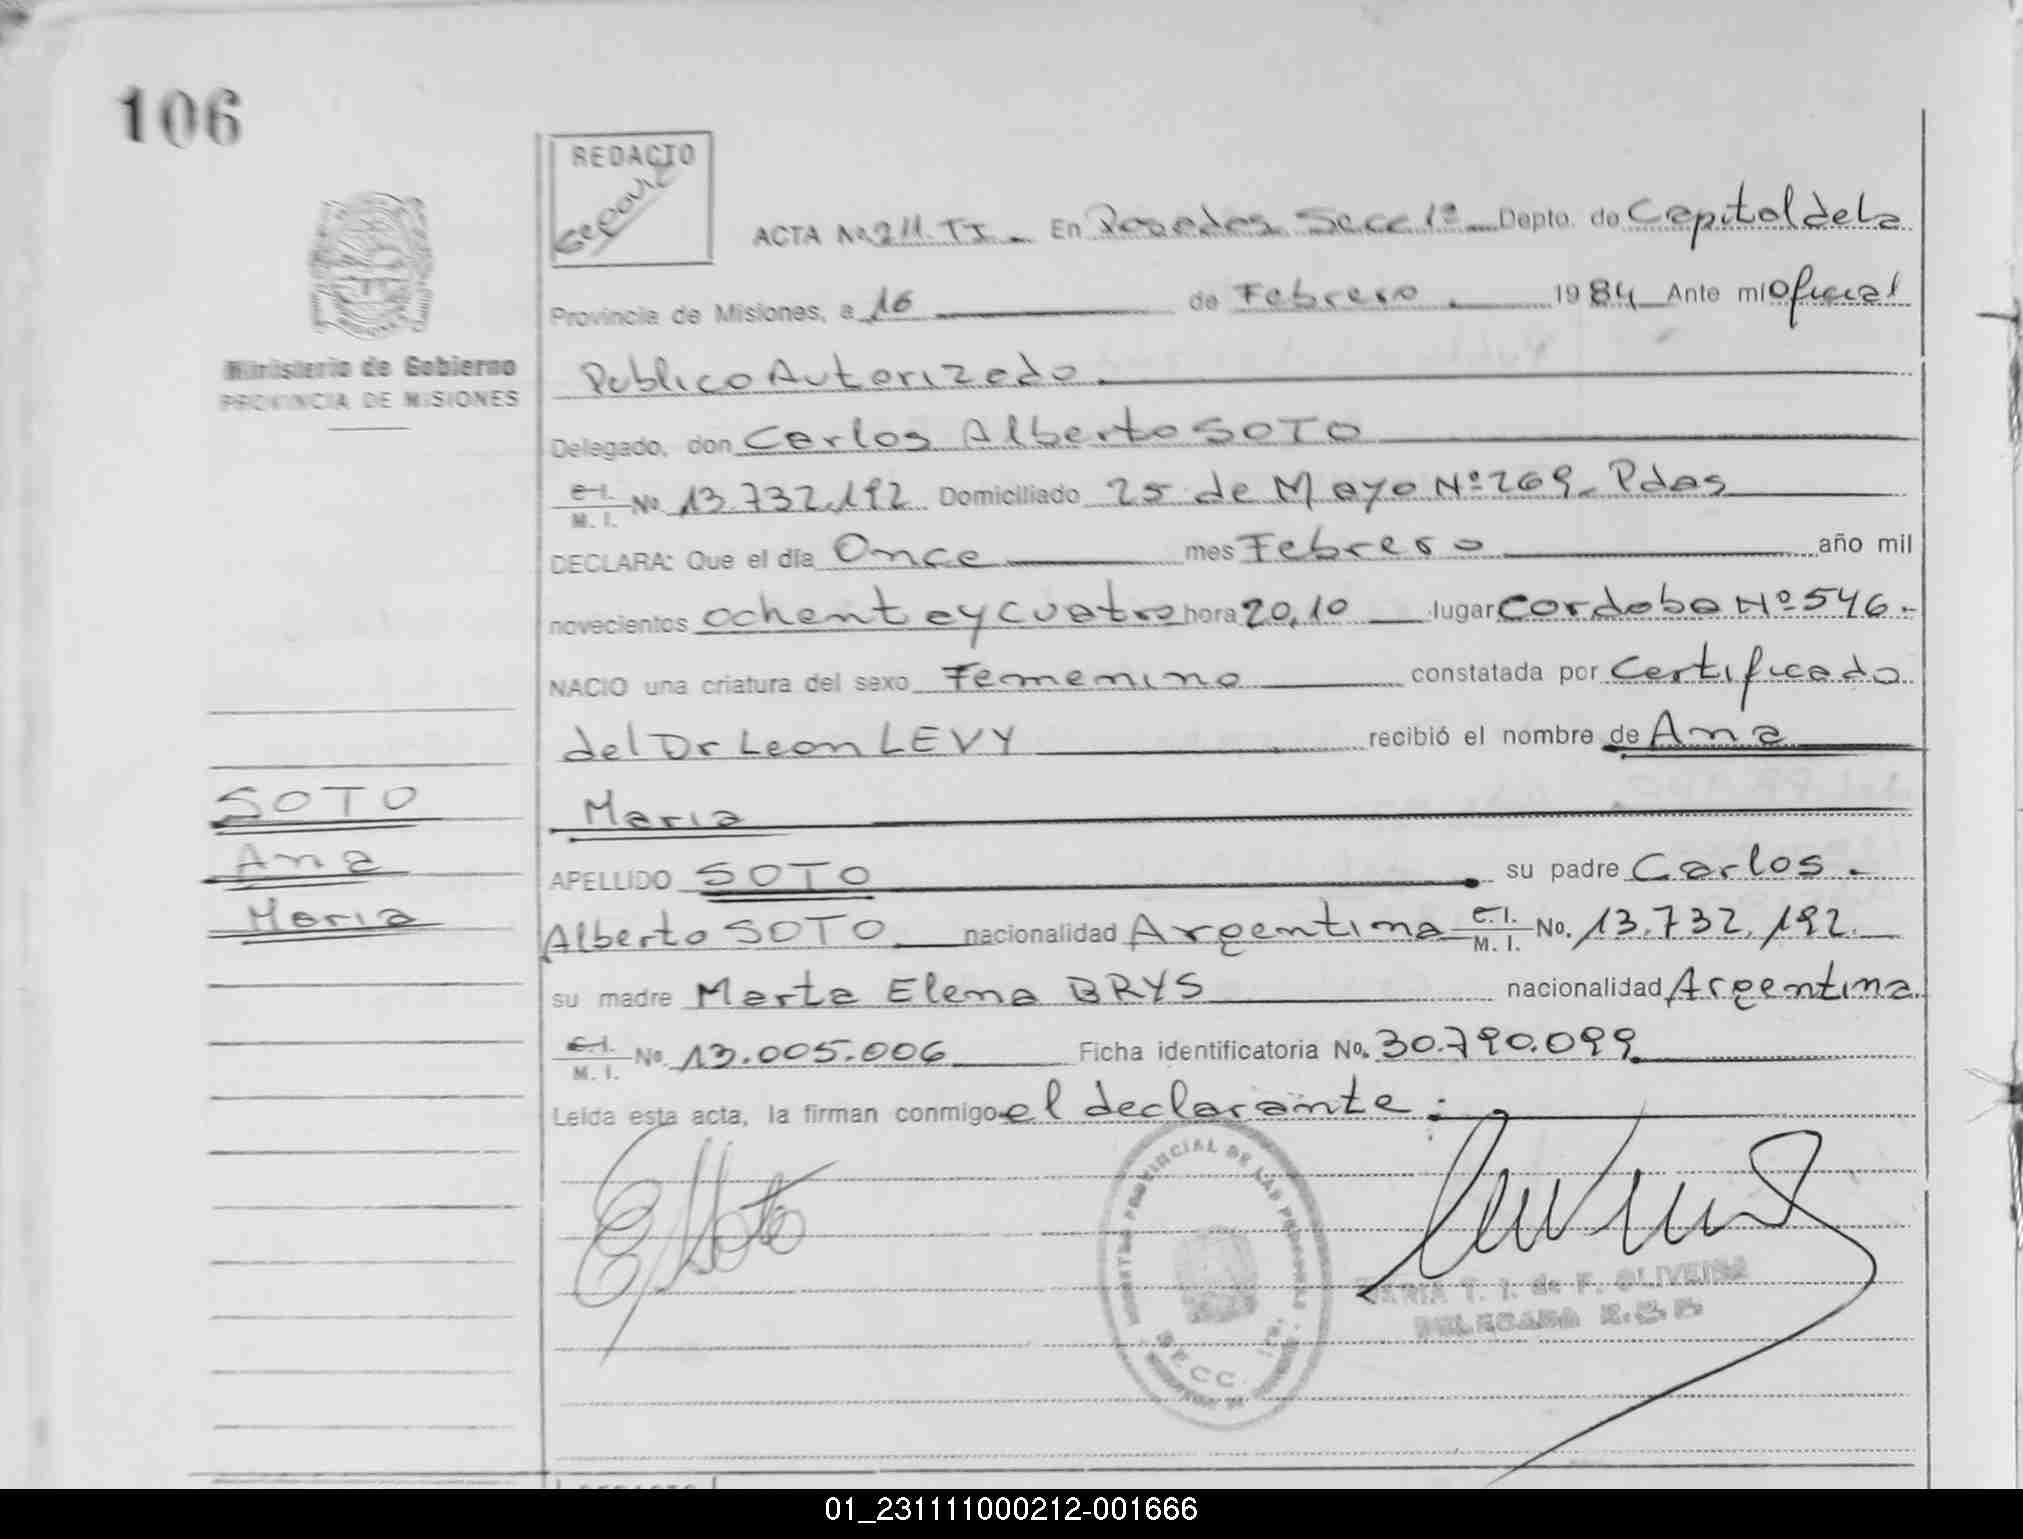 106
REDACTO
ACTA No 211. TI. En Posadas Secc 1ª Depto. de Capital de la
Provincia de Misiones, a 16 de Febrero. 1984 Ante mi oficial
Ministerio de Gobierno
PROVINCIA DE MISIONES
Publico Autorizado.
Delegado, don Carlos Alberto SOTO
C.I. M. I. No 13.732.192 Domiciliado 25 de Mayo Nº 269. Pdas
DECLARA: Que el día Once mes Febrero año mil
novecientos ochent ay cuatro hora 20,10 lugar Cordoba Nº 546.-
NACIO una criatura del sexo Femenino constatada por Certificado
del Dr Leon LEVY recibió el nombre de Ana
Maria
SOTO
Ana
Maria
APELLIDO SOTO su padre Carlos.
Alberto SOTO nacionalidad Argentina C.I. M. I. No. 13.732.192.
su madre Marta Elena BRYS nacionalidad Argentina.
C.I. M. I. No. 13.005.006 Ficha identificatoria No. 30.790.099.
Leída esta acta, la firman conmigo el declarante:
PROVINCIAL DE LAS PERSONAS
MARIA T. I. de F. OLIVEIRA
DELEGADA
01_231111000212-001666